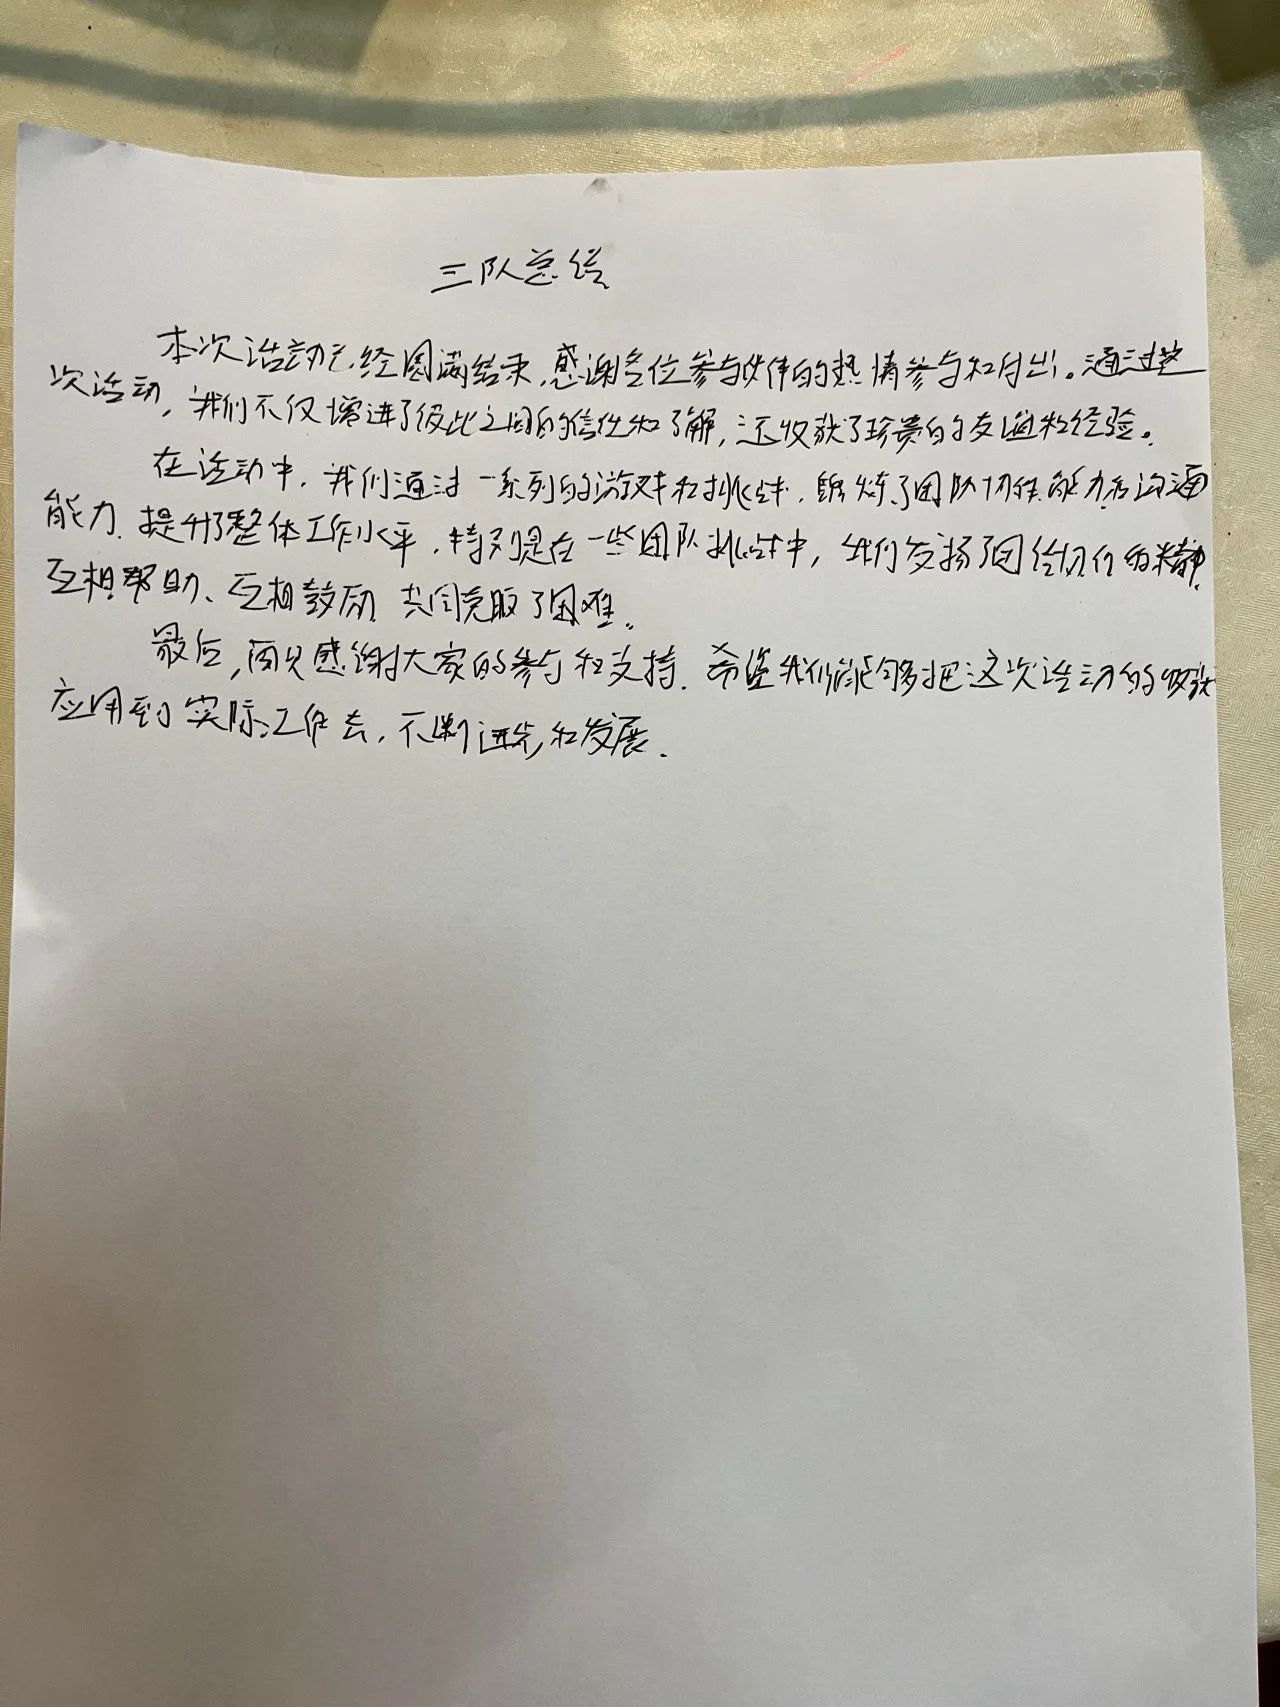 三队总结
本次活动已经圆满结束,感谢各位参与伙伴的热情参与和付出。通过这
次活动,我们不仅增进了彼此之间的信任和了解,还收获了珍贵的友谊和经验。
在活动中,我们通过一系列的游戏和挑战,锻炼了团队协作能力和沟通
能力,提升了整体工作水平,特别是在一些团队挑战中,我们发扬了团结协作的精神,
互相帮助、互相鼓励,共同克服了困难。
最后,再次感谢大家的参与和支持,希望我们能够把这次活动的收获
应用到实际工作去,不断进步和发展.